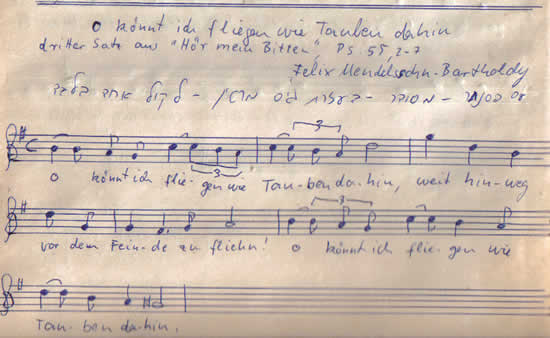 O könnt ich fliegen wie Tauben dahin
dritter Satz aus "Hör mein Bitten", Ps. 55, 2-7
Felix Mendelssohn-Bartholdy
לקול ארבי בלבד
3 3
O könnt ich flie- gen wie Tau- ben da- hin, weit hin- weg
3
vor dem Fein- de zu fliehn! O könnt ich flie- gen wie
Tau- ben da- hin.